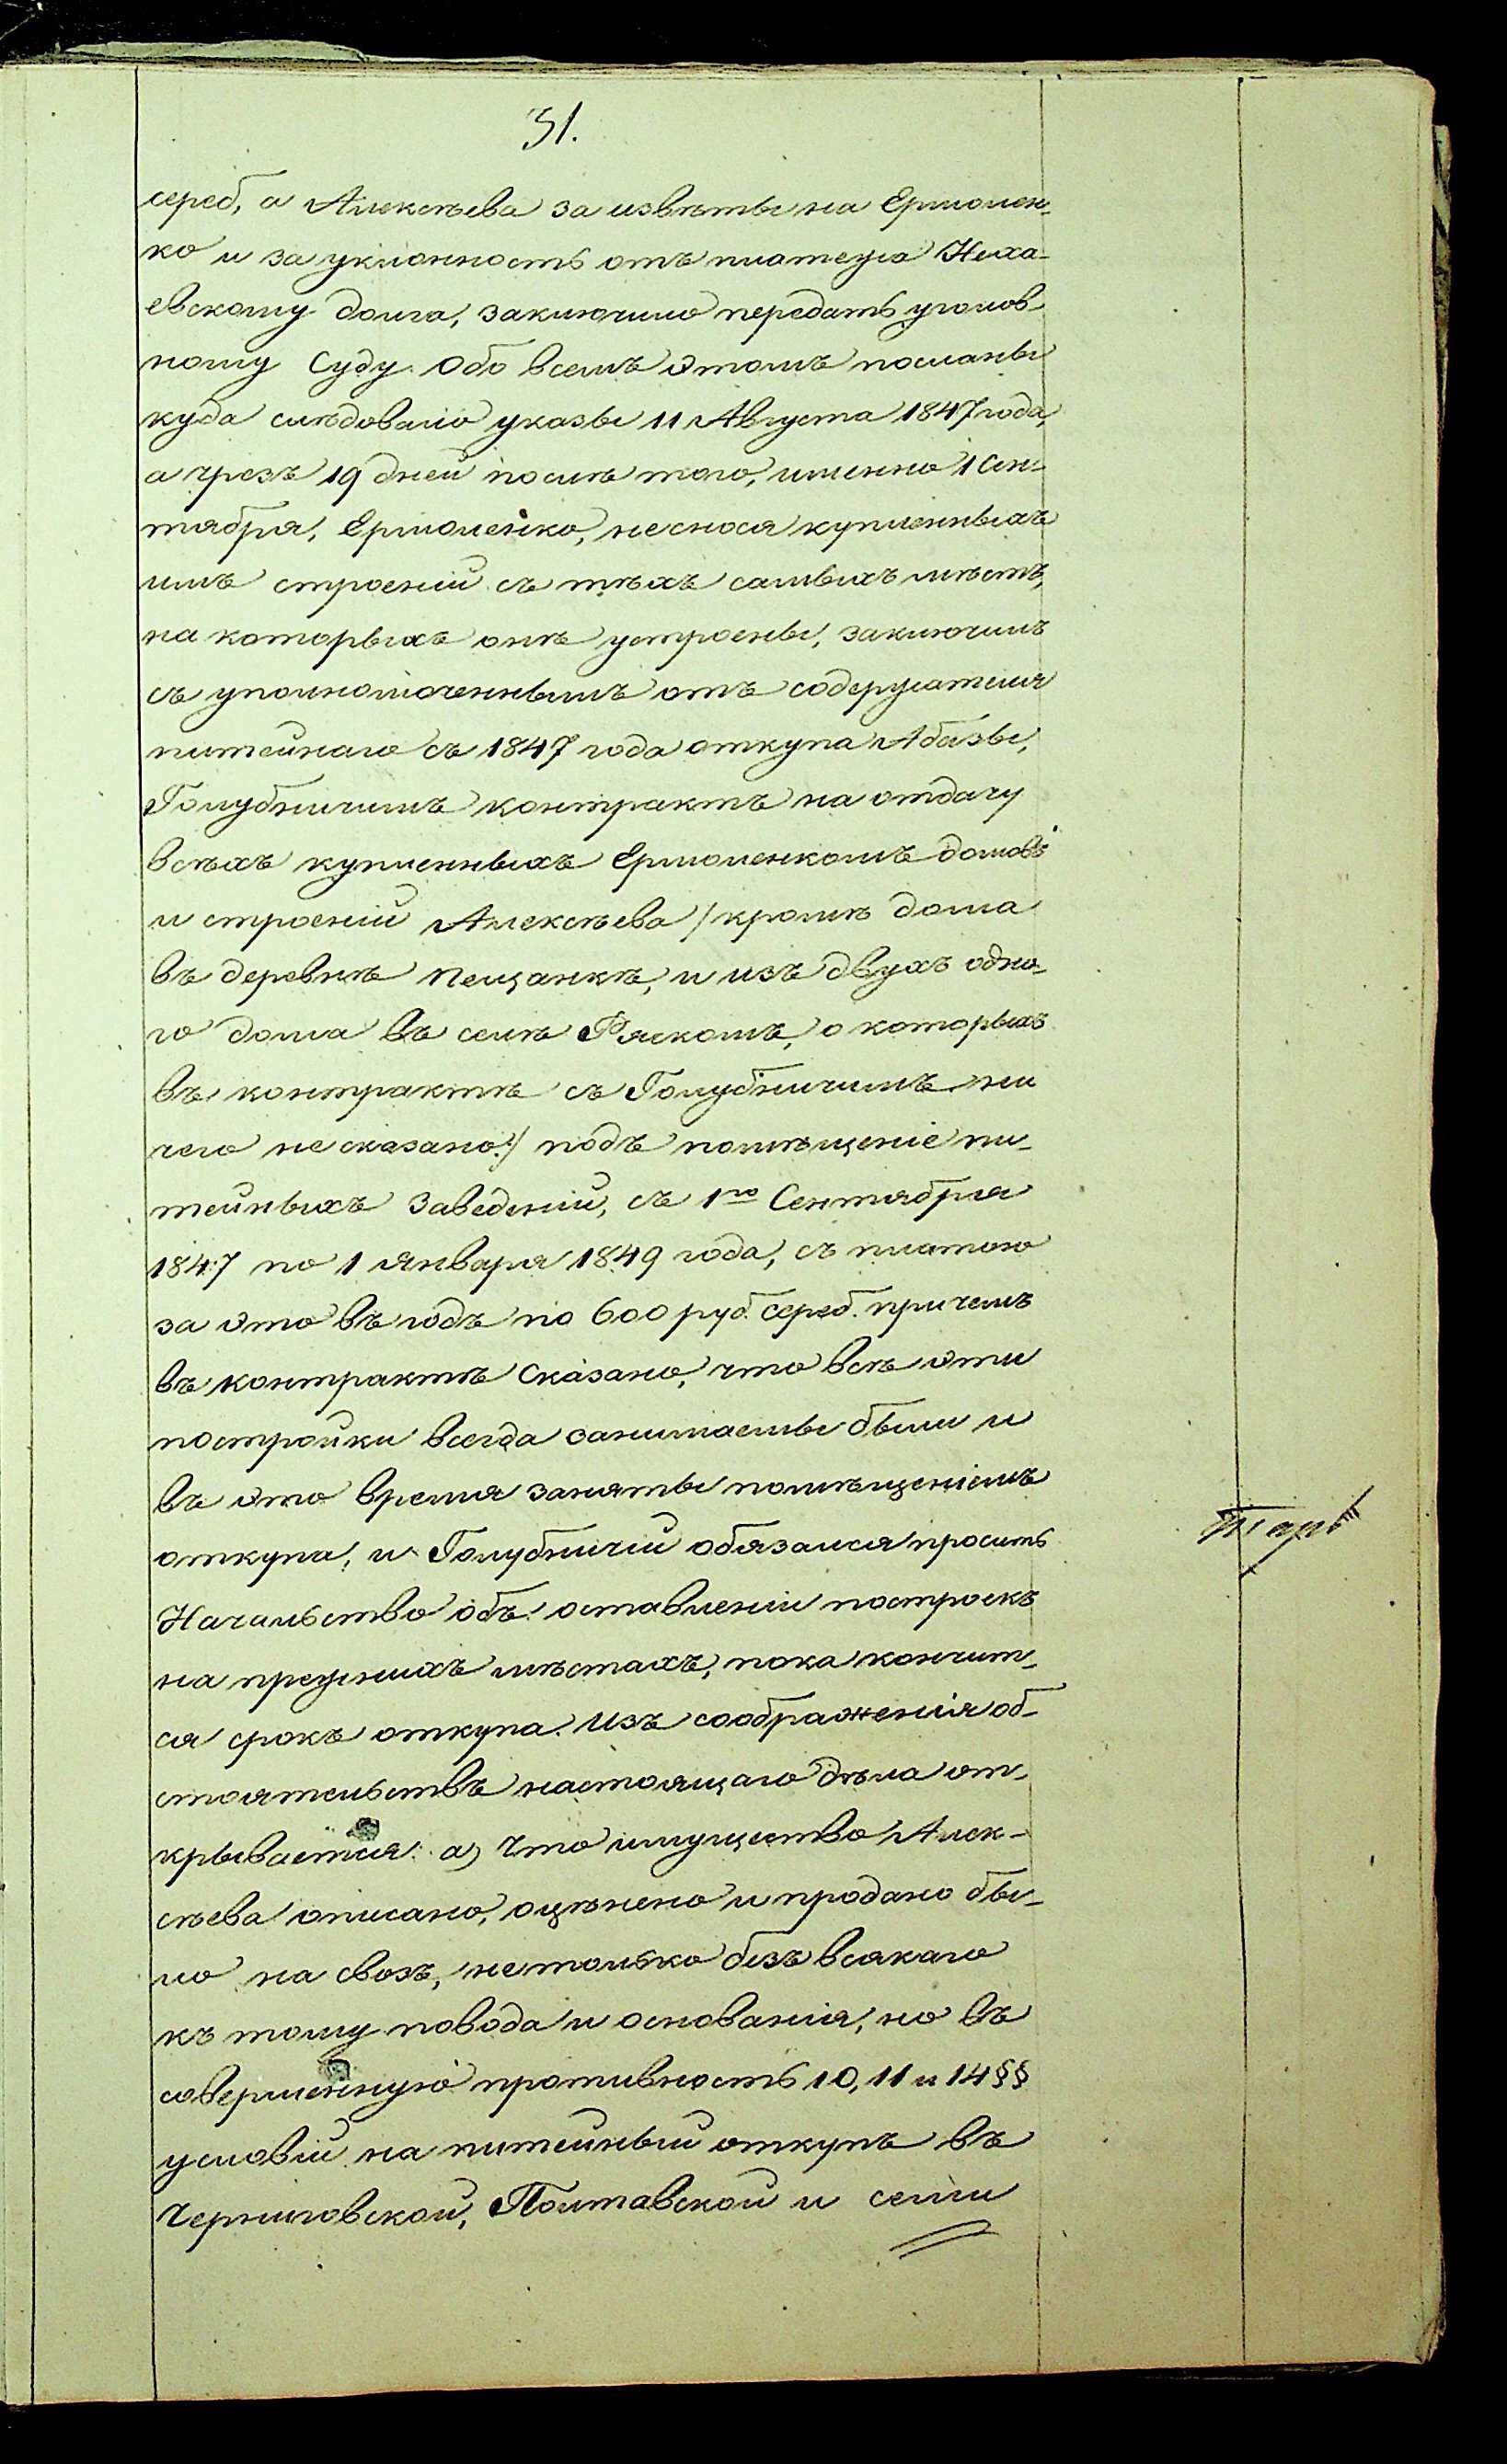 31.
сереб, а Алексѣева за извѣты на Ермолен-
ко и за уклонность отъ платежа Неха-
евскому долга, заключило передать уголов-
ному Суду. Обо всемъ этомъ посланы
куда слѣдовало указы 11 Августа 1847 года,
а чрезъ 19 дней послѣ того, именно 1 Сен-
тября, Ермоленко, не снося купленныхъ
имъ строеній съ тѣхъ самыхъ мѣстъ,
на которыхъ онѣ устроены, заключилъ
съ уполномоченнымъ отъ содержателя
питейнаго съ 1847 года откупа Абазы,
Голубничимъ контрактъ на отдачу
всѣхъ купленныхъ Ермоленкомъ домовъ
и строеній Алексѣева /кромѣ дома
въ деревнѣ Пещанкѣ, и изъ двухъ одно-
го дома въ селѣ Ряскомъ, о которыхъ
въ контрактѣ съ Голубничимъ ни
чего не сказано:/ подъ помѣщеніе пи-
тейныхъ заведеній, съ 1го Сентября
1847 по 1 Января 1849 года, съ платою
за это въ годъ по 600 руб. сереб. причемъ
въ контрактѣ сказано, что всѣ эти
постройки всегда занимаемы были и
въ это время заняты помѣщеніемъ
откупа, и Голубничій обязался просить
Начальство объ оставленіи построекъ
на прежнихъ мѣстахъ, пока кончит-
ся срокъ откупа. Изъ соображенія об-
стоятельствъ настоящаго дѣла от-
крывается: а) Что имущество Алек-
сѣева описано, оцѣнено и продано бы-
ло на свозъ, не только безъ всякаго
къ тому повода и основанія, но въ
совершенную противность 10, 11 и 14 §§
условій на питейный откупъ въ
Черниговской, Полтавской и семи